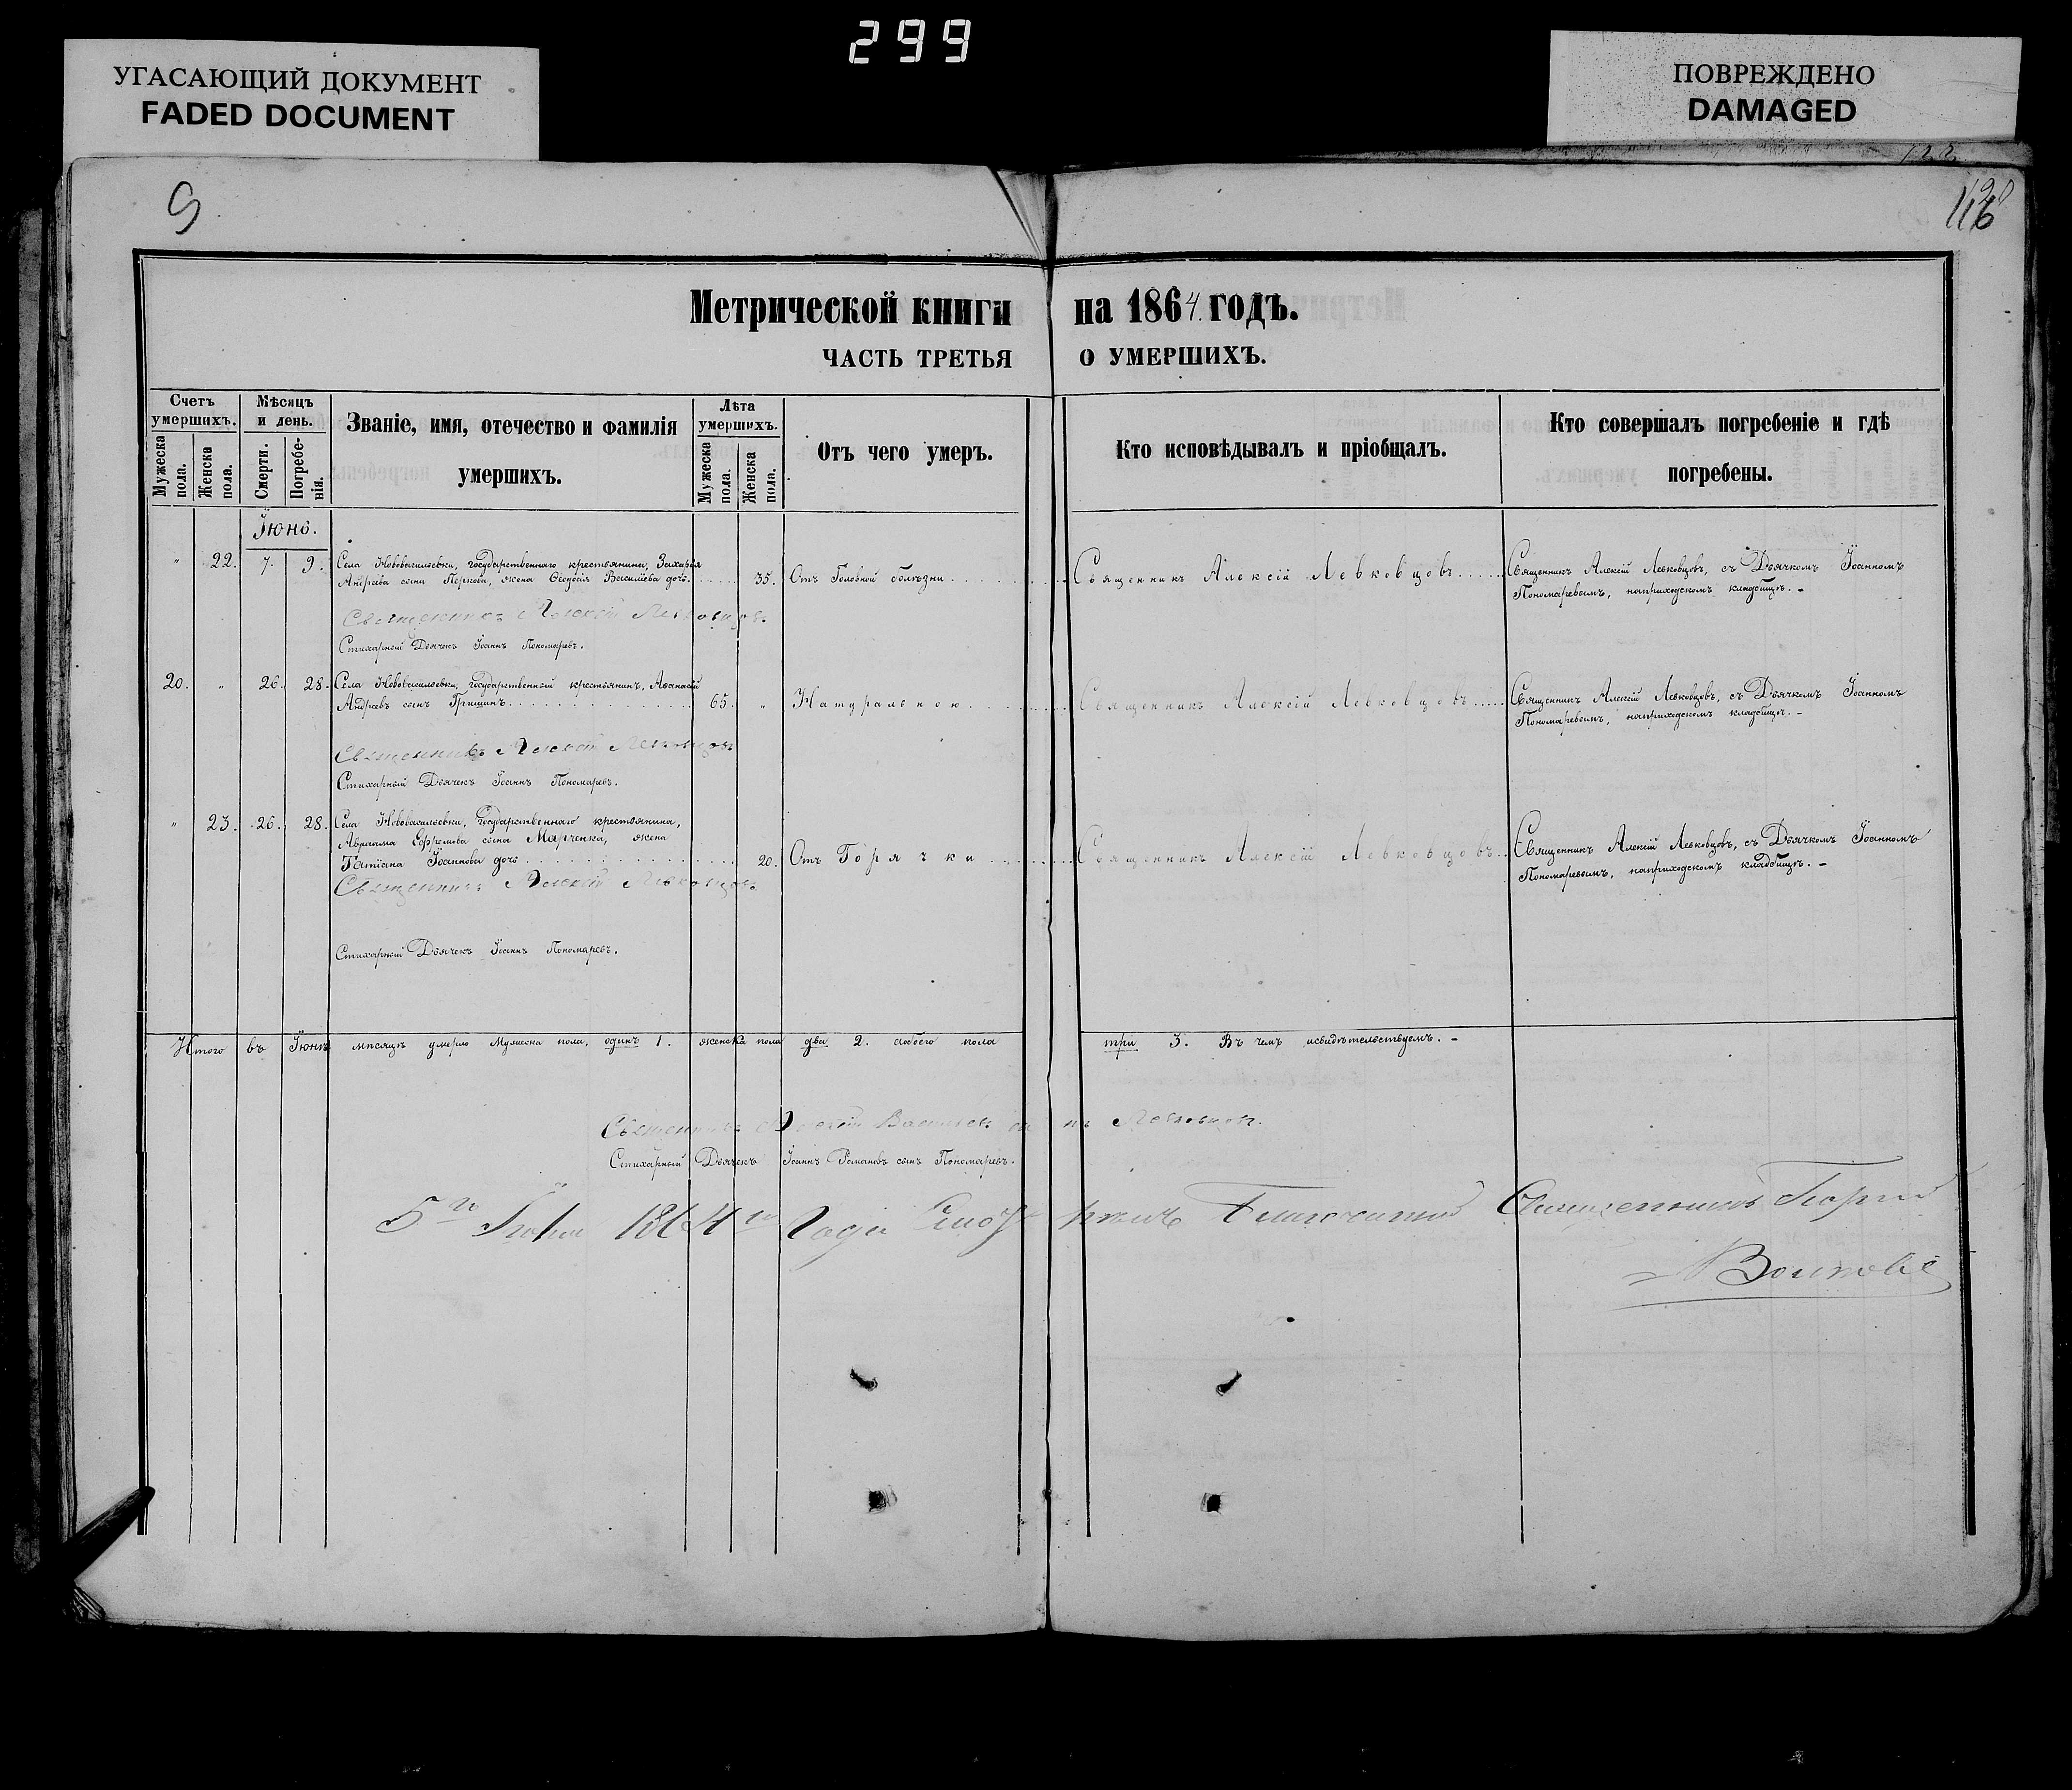 299
УГАСАЮЩИЙ ДОКУМЕНТ
FADED DOCUMENT
ПОВРЕЖДЕНО
DAMAGED
9
Метрической книги на 1864 годъ.
ЧАСТЬ ТРЕТЬЯ О УМЕРШИХЪ.
Счетъ умершихъ.
Мужеска пола.
Женска пола.
Мѣсяцъ и день.
Смерти.
Погребенія.
Званіе, имя, отечество и фамилія умершихъ.
Лѣта умершихъ.
Мужеска пола.
Женска пола.
Отъ чего умеръ.
Кто исповѣдывалъ и пріобщалъ.
Кто совершалъ погребеніе и гдѣ погребены.
Іюнь.
" 22. 7. 9. Села Нововасильевки, государственнаго крестьянина, Захарія
Андреева сына Перкова, жена Ѳеодосія Василіева дочь. 35. Отъ Головной болѣзни
Священникъ Алексій Левковцовъ
Священникъ Алексій Левковцовъ, съ Дьячкомъ Іоанномъ
Пономаревымъ, на приходскомъ кладбищѣ. -
Священникъ Алексій Левковцовъ.
Стихарный Дьячекъ Іоаннъ Пономаревъ.
20. " 26. 28. Села Нововасильевки, государственный крестьянинъ, Аѳанасій
Андреевъ сынъ Гришинъ. 65. " Натуральною
Священникъ Алексій Левковцовъ
Священникъ Алексій Левковцовъ, съ Дьячкомъ Іоанномъ
Пономаревымъ, на приходскомъ кладбищѣ. -
Священникъ Алексій Левковцовъ
Стихарный Дьячекъ Іоаннъ Пономаревъ.
" 23. 26. 28. Села Нововасильевки, Государственнаго крестьянина,
Авраама Ефремова сына Марченка, жена
Татіана Іоаннова дочь 20. Отъ Горячки
Священникъ Алексій Левковцовъ
Священникъ Алексій Левковцовъ, съ Дьячкомъ Іоанномъ
Пономаревымъ, на приходскомъ кладбищѣ. -
Священникъ Алексій Левковцовъ
Стихарный Дьячекъ Іоаннъ Пономаревъ.
Итого въ Іюнѣ мѣсяцѣ умерло Мужеска пола, одинъ 1. женска пола два 2. обоего пола три 3. Въ чемъ и свидѣтельствуемъ. -
Священникъ Алексій Васильевъ сынъ Левковцовъ.
Стихарный Дьячекъ Іоаннъ Романовъ сынъ Пономаревъ.
5го 1864го Года Благочинный Священникъ Георгій